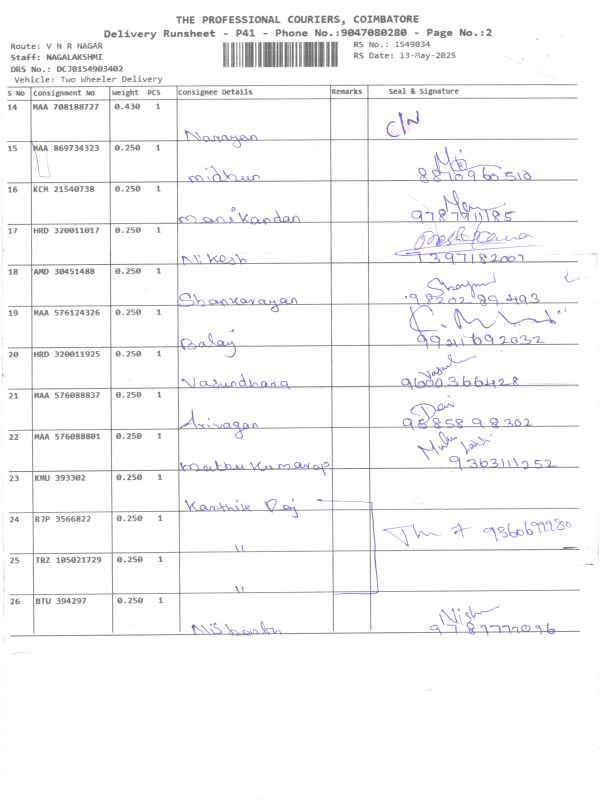 THE PROFESSIONAL COURIERS, COIMBATORE
Delivery Runsheet - P41 - Phone No.:9047080280 - Page No.:2
Route: V N R NAGAR RS No.: 1549034
Staff: NAGALAKSHMI RS Date: 13-May-2025
DRS No.: DCJB154903402
Vehicle: Two Wheeler Delivery
S No Consignment No Weight PCS Consignee Details Remarks Seal & Signature
14 MAA 708188727 0.430 1
Narayan C/N
15 MAA 869734323 0.250 1
midhun 8870960510
16 KCM 21540738 0.250 1
manikandan 9787911785
17 HRD 320011017 0.250 1
Nikesh 7397182007
18 AMD 30451488 0.250 1
Shankarayan 98202 89493
19 MAA 576124326 0.250 1
Balaj 9941692032
20 HRD 320011925 0.250 1
Vasundhara 9600366428
21 MAA 576088837 0.250 1
Arivagan Devi 95858 98302
22 MAA 576088801 0.250 1
9363111252
23 KMU 393302 0.250 1
Karthik Raj
24 RJP 3566822 0.250 1
" 9360699980
25 TRZ 105021729 0.250 1
"
26 BTU 394297 0.250 1
9787777096